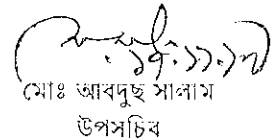 ১৫.১১.১৭
মোঃ আবদুছ সালাম
উপসচিব